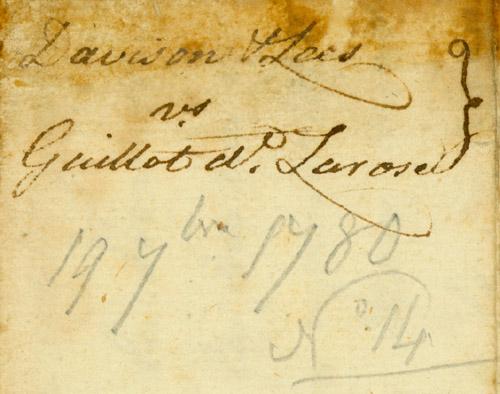 Davison & Lees
vs
Guillot dt. Larose
19 7bre 1780
No. 14